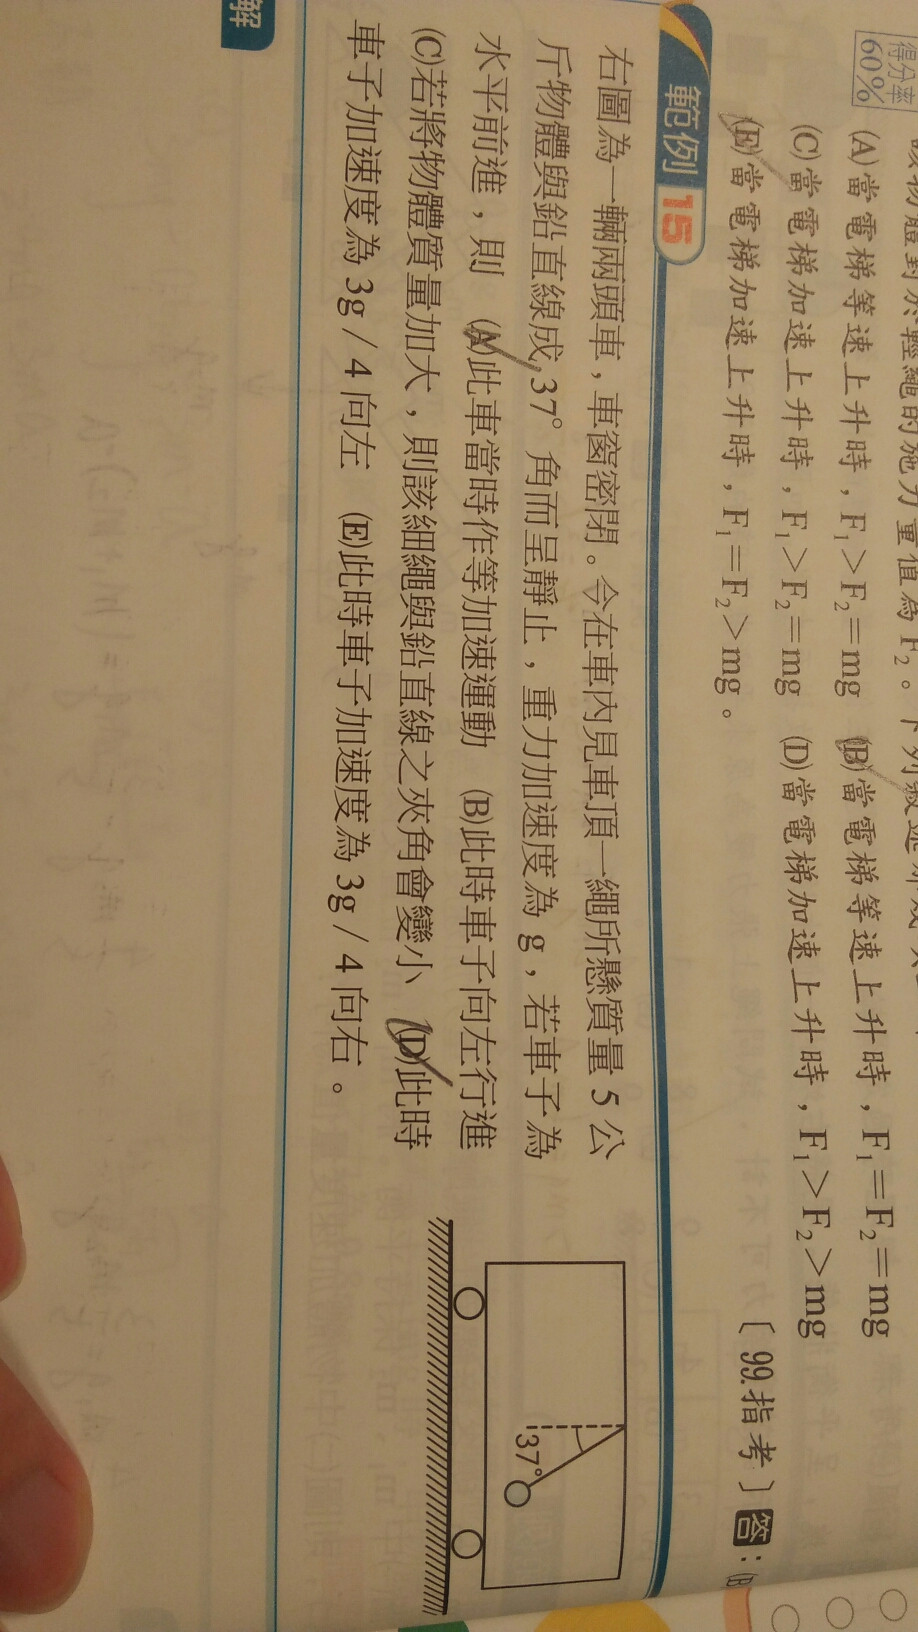 該物體對於輕繩的施力量值為 F₂。下列敘述
得分率
60%
(A)當電梯等速上升時，F₁＞F₂＝mg (B)當電梯等速上升時，F₁＝F₂＝mg
(C)當電梯加速上升時，F₁＞F₂＝mg (D)當電梯加速上升時，F₁＞F₂＞mg
(E)當電梯加速上升時，F₁＝F₂＞mg。 〔99.指考〕答：(B
範例 15
右圖為一輛兩頭車，車窗密閉。今在車內見車頂一繩所懸質量 5 公
斤物體與鉛直線成 37° 角而呈靜止，重力加速度為 g，若車子為
水平前進，則 (A)此車當時作等加速運動 (B)此時車子向左行進
(C)若將物體質量加大，則該細繩與鉛直線之夾角會變小 (D)此時
車子加速度為 3g / 4 向左 (E)此時車子加速度為 3g / 4 向右。
37°
解